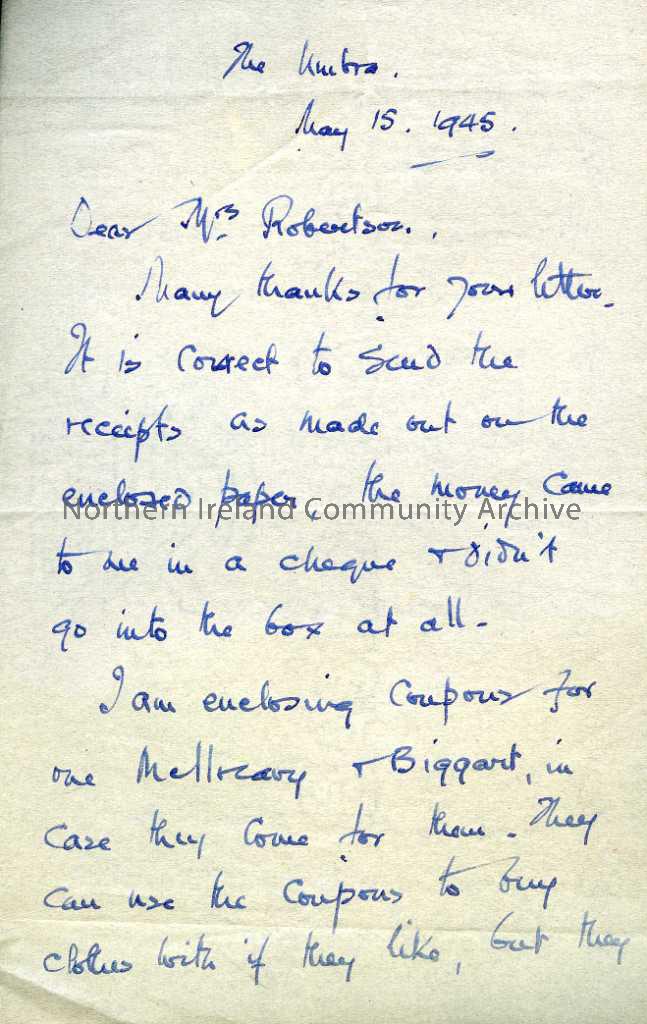 The Umbra.
May 15. 1945.
Dear Mrs Robertson.,
Many thanks for your letter.
It is correct to send the
receipts as made out on the
enclosed paper, the money came
Northern Ireland Community Archive
to me in a cheque + didn't
go into the box at all -
I am enclosing coupons for
one McIlreavy + Biggart, in
case they come for them - They
can use the coupons to buy
clothes with if they like, but they